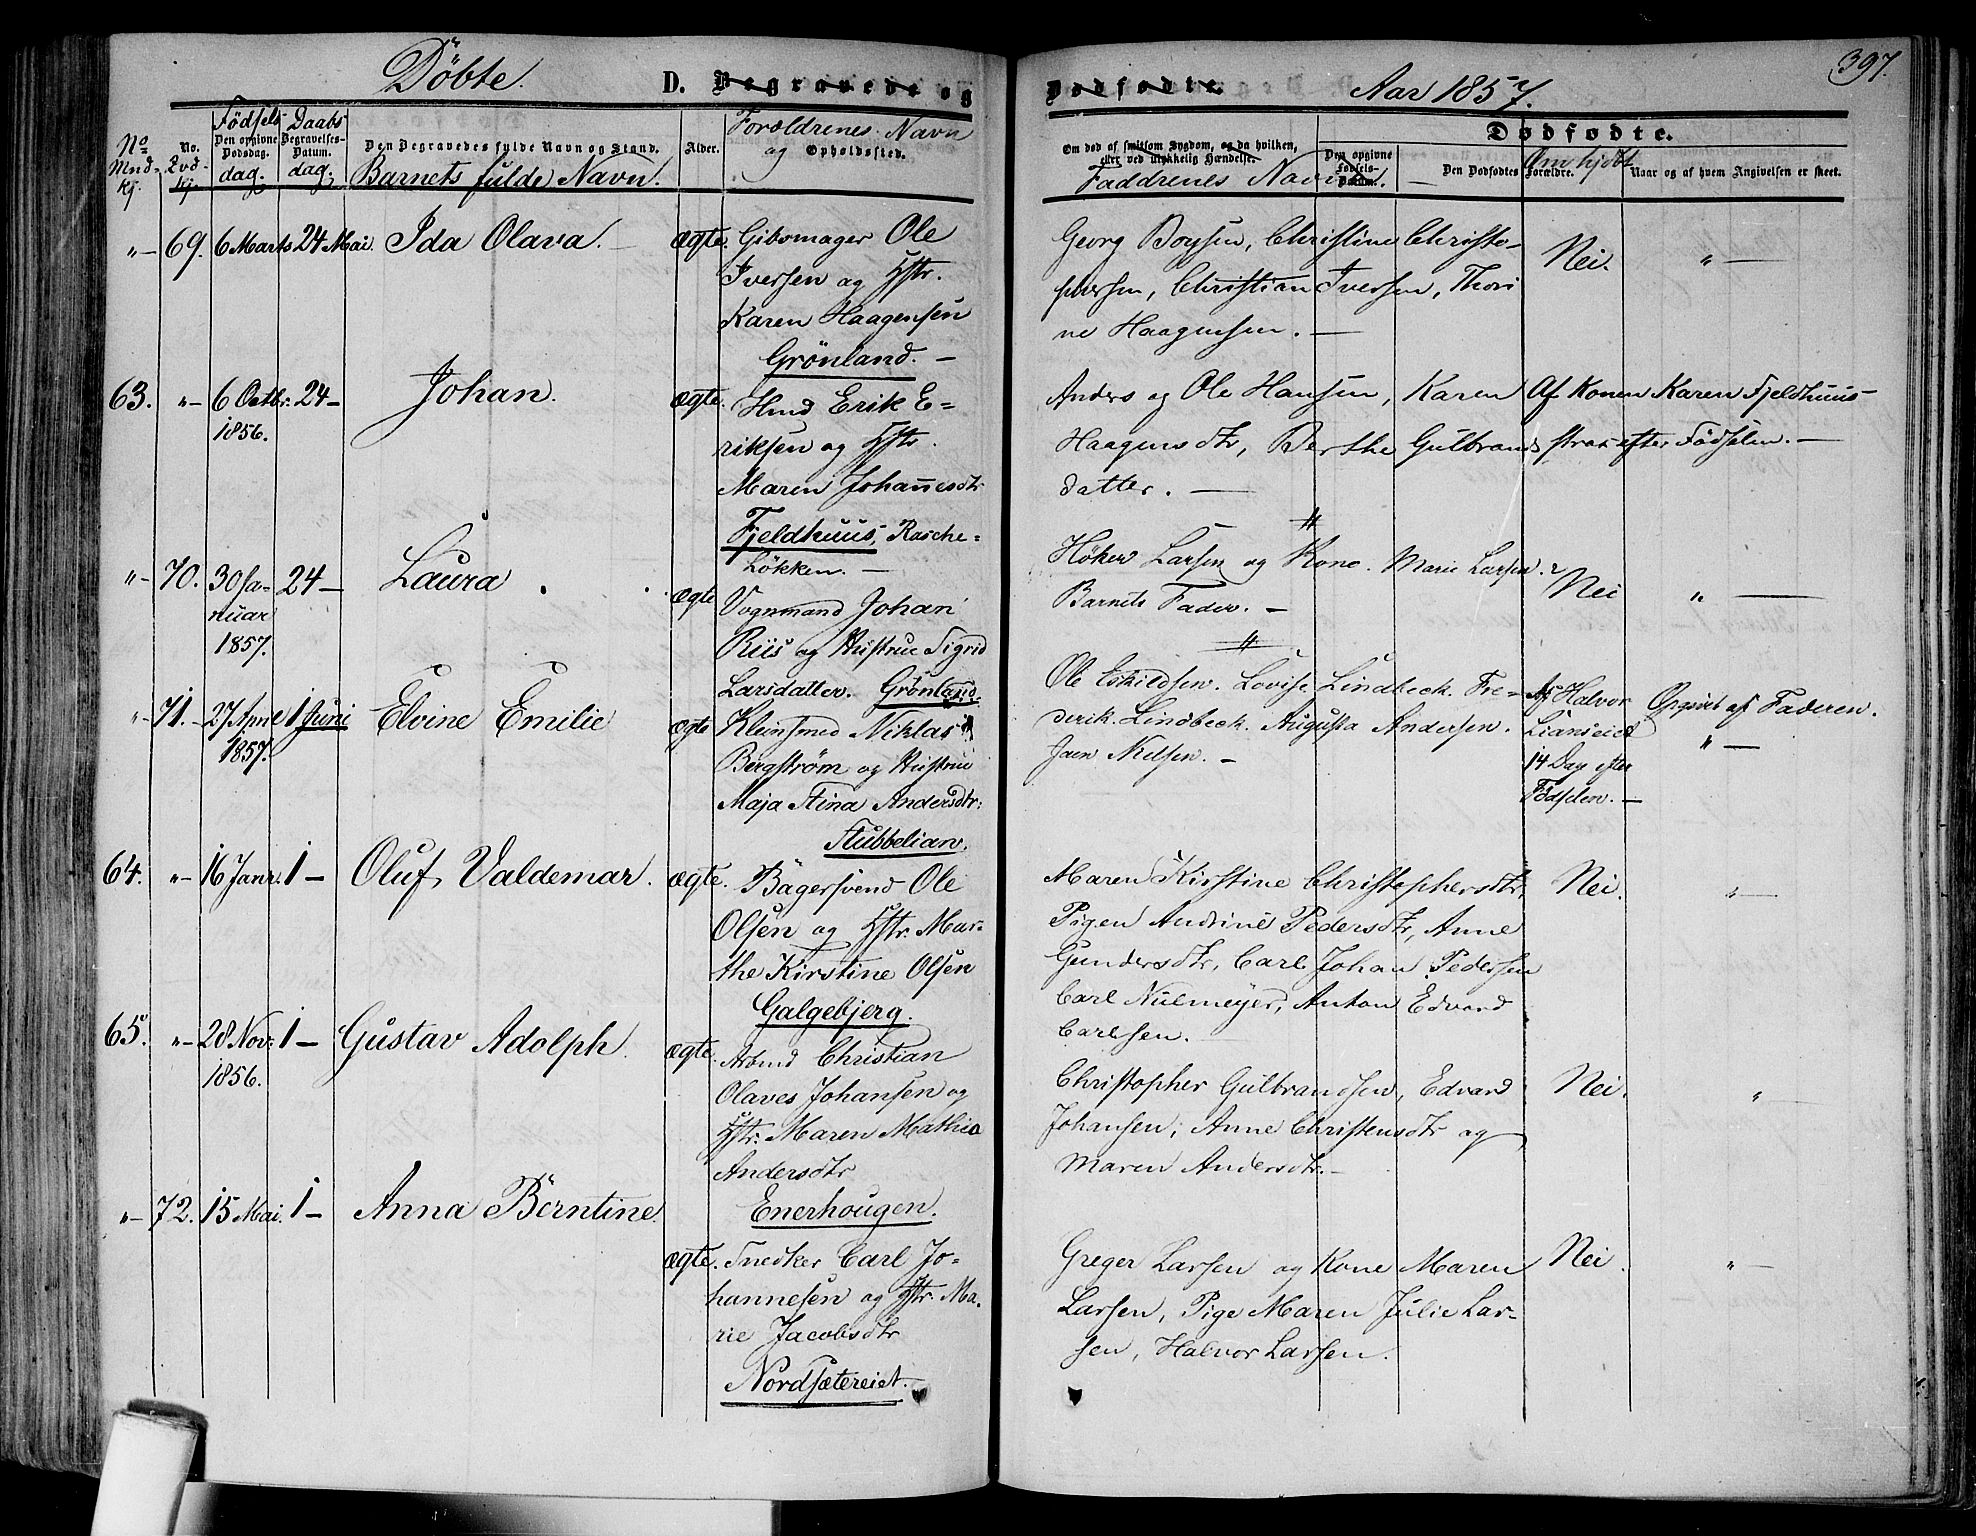 397.
Döbte. D. Begravede og Dødfødte. Aar 1857.
No Mnd-kj. No. Qvd-kj. Fødsels Den opgivne Dødsdag. dag. Daabs Begravelses-Datum. dag. Den Begravedes fulde Navn og Stand. Barnets fulde Navn. Alder. Forældrenes Navn og Opholdssted.
Om død af smitsom Sygdom, og da hvilken, eller ved ulykkelig Hændelse. Faddrenes Navne. Den opgivne Fødsels-Datum. Dødfødte. Den Dødfødtes Forældre. Om hjdbt Naar og af hvem Angivelsen er skeet.
"- 69. 6 Marts 24 Mai. Ida Olava. - ægte. Gibsmager Ole
Iversen og Hstr.
Karen Haagensen
Grönland. -
Georg Boysen, Christine Christo-
phersen, Christian Iversen, Thori
ne Haagensen. -
Nei. " -
63. "- 6 Octbr. 24 - Johan. ægte. Hmd Erik E-
1856. riksen og Hstr.
Maren Johannesdtr
Fjeldhuus, Rasche-
Løkken. -
Anders og Ole Hansen, Karen
Haagensdtr, Berthe Gulbrands
datter. -
Af Konen Karen Fjeldhuus -
strax efter Födselen. -
"- 70. 30 Ja- 24 - Laura . ægte Vognmand Johan
nuar Riis og Hustrue Sigrid
1857. Larsdatter. Grönland.
Høker Larsen og Kone. Marie Larsen.
Barnets Fader. -
Nei " -
"- 71. - 27 April 1 Juni Elvine Emilie ægte Kleinsmed Niklas
1857. Bergström og Hustrue
Maja Stina Andersdtr:
Stubbelian.
Ole Eskildsen. Lovise Lindbeck. Fre-
derik. Lindbeck. Augusta Andersen.
Jaen Nilsen. -
Af Halvor
Lianseiet
14 Dag efter
Födselen. -
Opgivet af Faderen.
" -
64. "- 16 Janr. 1 - Oluf Valdemar. ægte. Bagersvend Ole
Olsen og Hstr. Mar-
the Kirstine Olsen
Galgebjerg.
Maren Kirstine Christophersdtr,
Pigen Andrine Pedersdtr, Anne
Gundersdtr, Carl Johan Pedersen
Carl Nielmeyer, Anton Edvard
Carlsen. -
Nei. " -
65. "- 28 Nov: 1 - Gustav Adolph. ægte. Arbmd Christian
1856. Olaves Johansen og
Hstr: Maren Mathea
Andersdtr
Enerhougen.
Christopher Gulbrandsen, Edvard
Johansen, Anne Christensdtr og
Maren Andersdtr. -
Nei. " -
"- 72. 15 Mai. 1 - Anna Berntine. ægte. Snedker Carl Jo-
hannesen og Hstr. Ma-
rie Jacobsdtr
Nordsætereiet. -
Greger Larsen og Kone Maren
Larsen, Pige Maren Julie Lar-
sen, Halvor Larsen.
Nei. " -